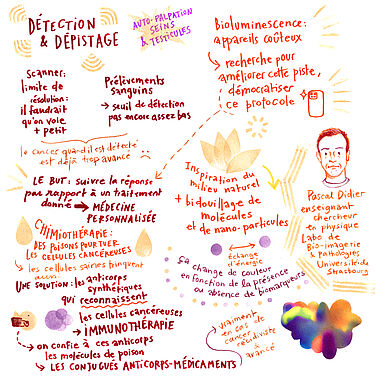 DÉTECTION
& DÉPISTAGE
AUTO-PALPATION
SEINS
& TESTICULES
Scanner:
limite de
résolution:
il faudrait
qu'on voie
+ petit
Prélèvements
sanguins
→ seuil de détection
pas encore assez bas
le cancer quand il est détecté
est déjà trop avancé
LE BUT: suivre la réponse
par rapport à un traitement
donné → MÉDECINE
PERSONNALISÉE
CHIMIOTHÉRAPIE:
DES POISONS POUR TUER
LES CELLULES CANCÉREUSES
↳ les cellules saines trinquent
aussi
UNE SOLUTION: les anticorps
synthétiques
qui reconnaissent
les cellules cancéreuses
→ IMMUNOTHÉRAPIE
→ on confie à ces anticorps
les molécules de poison
↳ LES CONJUGUÉS ANTICORPS-MÉDICAMENTS
Bioluminescence:
appareils coûteux
↳ recherche pour
améliorer cette piste,
démocratiser
ce protocole
Inspiration du
milieu naturel
+ bidouillage de
molécules
et de nano-particules
échange
d'énergie
↳ ça change de couleur
en fonction de la présence
ou absence de biomarqueurs
vraiment
en cas
cancer
récidiviste
avancé
Pascal Didier
enseignant
chercheur
en physique
Labo de
Bio-imagerie
& Pathologies
Université de
Strasbourg